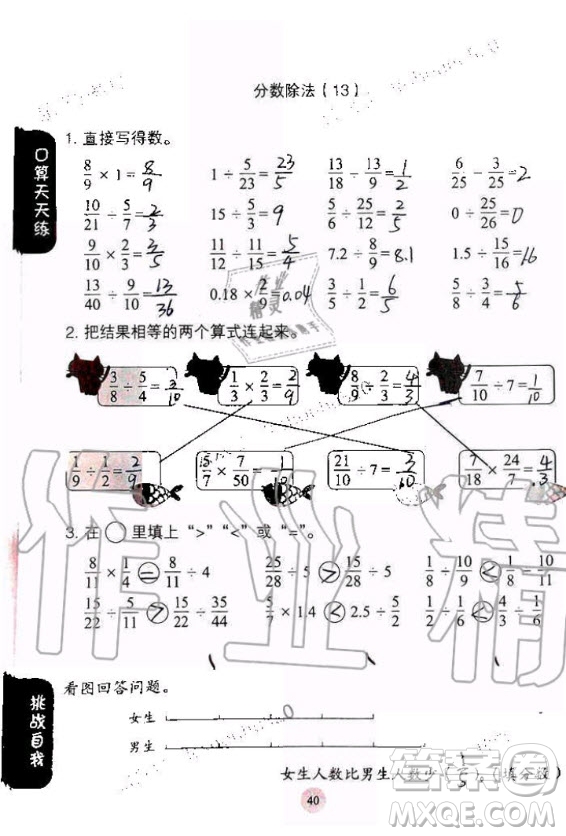 分数除法（13）
口算天天练
1. 直接写得数。
8/9 × 1 = 8/9  1 ÷ 5/23 = 23/5  13/18 ÷ 13/9 = 1/2  6/25 ÷ 3/25 = 2
10/21 ÷ 5/7 = 2/3  15 ÷ 5/3 = 9  5/6 ÷ 25/12 = 2/5  0 ÷ 25/26 = 0
9/10 × 2/3 = 3/5  11/12 ÷ 11/15 = 5/4  7.2 ÷ 8/9 = 8.1  1.5 ÷ 15/16 = 16
13/40 ÷ 9/10 = 13/36  0.18 × 2/9 = 0.04  3/5 ÷ 1/2 = 6/5  5/8 ÷ 3/4 = 5/6
2. 把结果相等的两个算式连起来。
3/8 ÷ 5/4 = 3/10  1/3 × 2/3 = 2/9  8/9 ÷ 2/3 = 4/3  7/10 ÷ 7 = 1/10
1/9 ÷ 1/2 = 2/9  15/7 × 7/50 =  21/10 ÷ 7 = 3/10  7/18 × 24/7 = 4/3
3. 在 ○ 里填上“>”“<”或“=”。
8/11 × 1/4 = 8/11 ÷ 4  25/28 ÷ 5 > 15/28 ÷ 5  1/8 ÷ 10/9 < 1/8 ÷ 10/11
15/22 ÷ 5/11 > 15/22 ÷ 35/44  5/7 × 1.4 < 2.5 ÷ 5/2  1/2 ÷ 1/6 < 4/3 ÷ 1/6
挑战自我
看图回答问题。
女生
男生
女生人数比男生人数少（1/5）。（填分数）
40
作业精灵
MXQE.COM